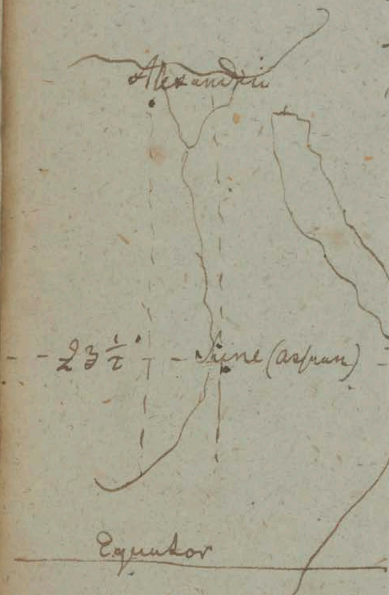 Alexandrii
23 1/2° Siine (Assuan)
Equator